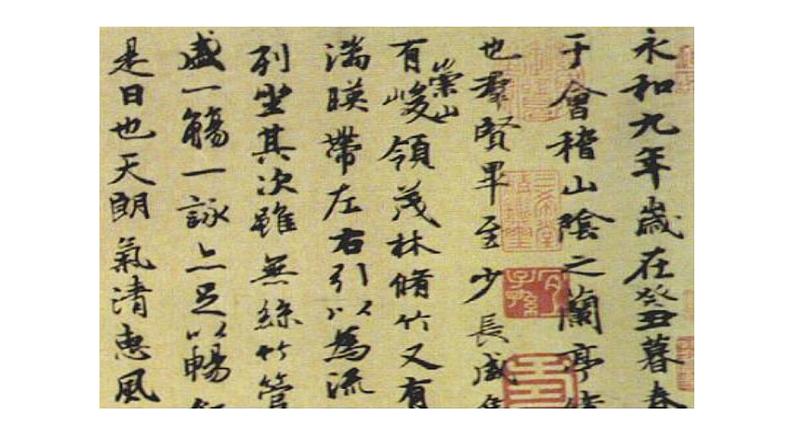 永和九年歲在癸丑暮春
于會稽山陰之蘭亭脩
也羣賢畢至少長咸集
有崇山峻領茂林脩竹又有
湍暎帶左右引以為流
列坐其次雖無絲竹管
盛一觴一詠亦足以暢
是日也天朗氣清惠風
三希堂精鑑璽
宜子孫